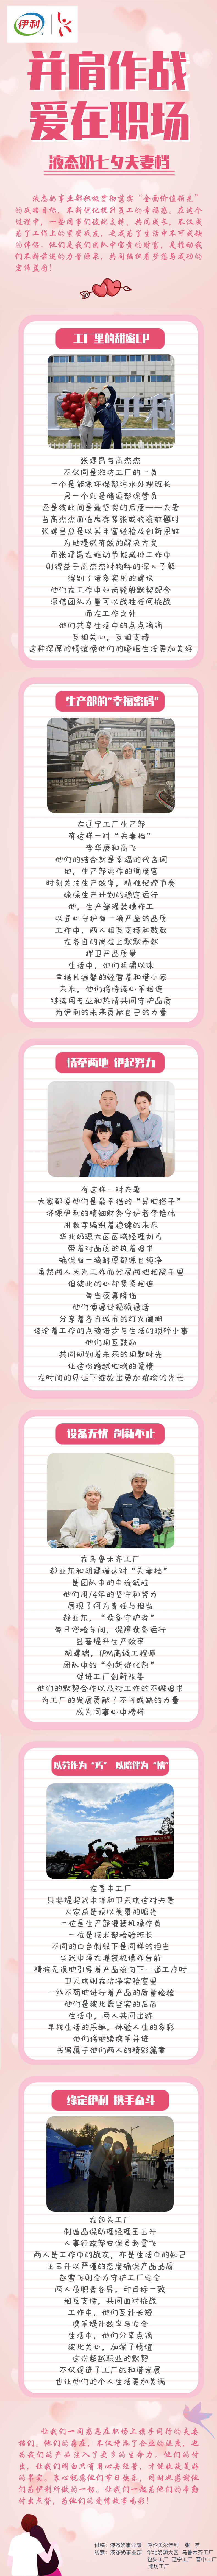 伊利
并肩作战
爱在职场
液态奶七夕夫妻档
液态奶事业部积极贯彻落实“全面价值领先”
的战略目标，不断优化提升员工的幸福感。在这个
过程中，一些同事们彼此支持、共同成长，不仅成
为了工作上的紧密战友，更成为了生活中不可或缺
的伴侣。他们是我们团队中宝贵的财富，是推动我
们不断前进的力量源泉，共同编织着梦想与成功的
宏伟蓝图！
工厂里的甜蜜CP
张建吕与高杰杰
不仅同是潍坊工厂的一员
一个是能源环保部污水处理班长
另一个则是储运部保管员
还是彼此间最坚实的后盾——夫妻
当高杰杰面临库存紧张或物流难题时
张建吕总是以其丰富经验及创新思维
为她提供有效的解决方案
而张建吕在推动节能减排工作中
则得益于高杰杰对物料的深入了解
得到了诸多实用的建议
他们在工作中如齿轮般默契配合
深信团队力量可以战胜任何挑战
而在工作之外
他们共享生活中的点点滴滴
互相关心，互相支持
这种深厚的情谊使他们的婚姻生活更加美好
生产部的“幸福密码”
在辽宁工厂生产部
有这样一对“夫妻档”
李华庚和高飞
他们的结合就是幸福的代名词
他，生产部运作的调度官
时刻关注生产效率，精准把控节奏
确保生产计划的稳定运行
她，生产部灌装操作工
以匠心守护每一滴产品的品质
工作中，两人相互支持和鼓励
在各自的岗位上默默奉献
捍卫产品质量
生活中，他们相濡以沫
幸福且温馨的经营着和谐小家
未来，他们将继续心手相连
继续用专业和热情共同守护品质
为伊利的未来贡献自己的力量
情牵两地 伊起努力
有这样一对夫妻
大家都说他们是最幸福的“异地搭子”
济源伊利的精细财务守护者李艳伟
用数字编织着稳健的未来
华北奶源大区区域经理刘月
带着对品质的执着追求
确保每一滴醇厚都源自纯净
虽然两人因为工作而分居两地相隔千里
但彼此的心却紧紧相连
每当夜幕降临
他们便通过视频通话
分享着各自城市的灯火阑珊
谈论着工作的点滴进步与生活的琐碎小事
他们相互鼓励
共同规划着未来的相聚时光
让这份跨越地域的爱情
在时间的见证下绽放出更加璀璨的光芒
设备无忧 创新不止
在乌鲁木齐工厂
郝亚东和胡建瑞这对“夫妻档”
是团队中的中流砥柱
他们用14年的坚守和努力
展现了何为责任与担当
郝亚东，“设备守护者”
每日巡检车间，保障设备运行
显著提升生产效率
胡建瑞，TPM高级工程师
团队中的“创新催化剂”
促进工厂创新改善
他们的默契合作以及对工作的不懈追求
为工厂的发展贡献了不可或缺的力量
成为同事心中榜样
以劳作为“巧” 以陪伴为“情”
在晋中工厂
只要提起武中泽和卫天琪这对夫妻
大家总是投以羡慕的目光
一位是生产部灌装机操作员
一位是技术部检验班长
不同的业务制服下是同样的担当
当武中泽在灌装机操作台前
精准无误地引导着产品流向下一道工序时
卫天琪则在洁净实验室里
一丝不苟地进行着产品的质量检验
他们是彼此最坚实的后盾
生活中，两人共同出游
寻找生活的乐趣，体验人生的多彩
他们将继续携手并进
书写属于他们两人的精彩篇章
缘定伊利 携手奋斗
在包头工厂
制造品保助理经理王玉升
人事行政部安保员赵雪飞
两人是工作中的战友，亦是生活中的知己
王玉升以严谨的态度确保产品品质
赵雪飞则全力守护工厂安全
两人虽职责各异，却目标一致
相互支持，共同面对挑战
工作中，他们互补长短
携手提升效率与安全
生活中，他们分享点滴
彼此关心，加深了情谊
这份超越职业的默契
不仅促进了工厂的和谐发展
也让他们的个人生活更加美满
让我们一同感恩在职场上携手同行的夫妻
档们。他们的存在，不仅增添了企业的温度，也
为我们的产品注入了更多的生命力。他们的付
出，让我们明白只有用心去经营，才能收获美好
的果实。衷心祝愿他们节日快乐，同时也感谢他
们为伊利所做的一切。让我们一起为他们的辛勤
付出点赞，为他们的爱情故事喝彩！
供稿：液态奶事业部 呼伦贝尔伊利 张 宇
线索：液态奶事业部 华北奶源大区 乌鲁木齐工厂
包头工厂 辽宁工厂 晋中工厂
潍坊工厂